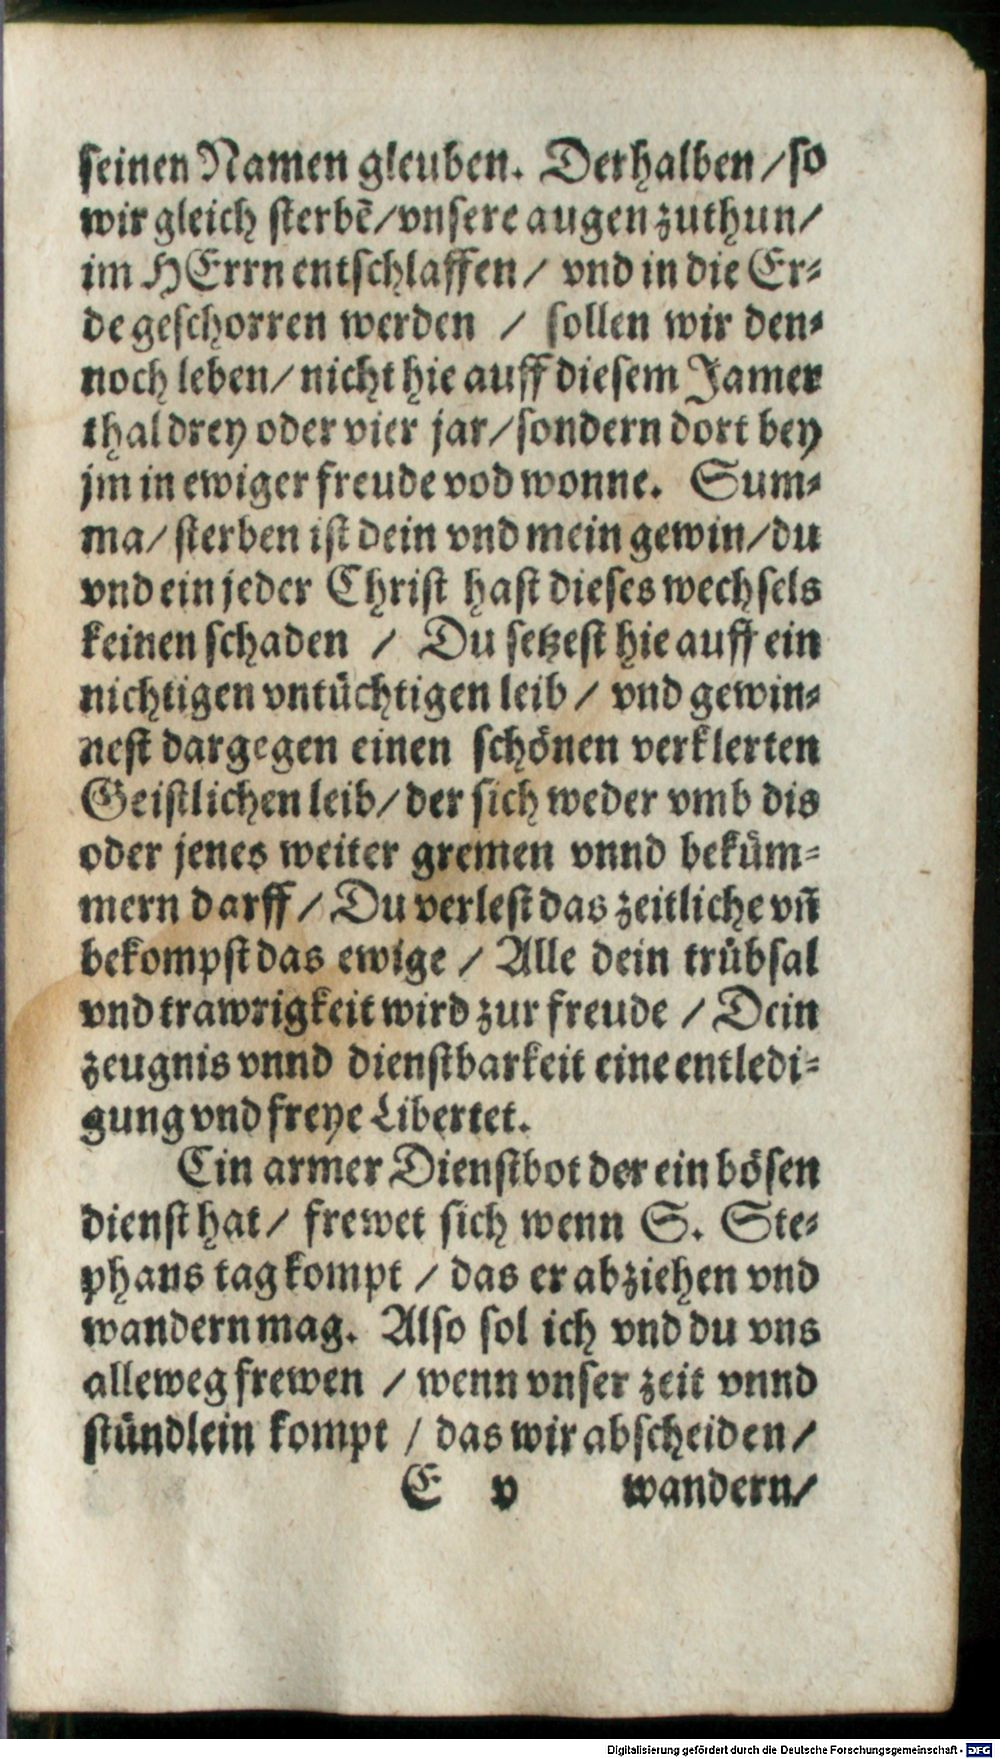 seinen Namen gleuben. Derhalben / so
wir gleich sterbẽ / vnsere augen zuthun /
im HErrn entschlaffen / vnd in die Er-
de geschorren werden / sollen wir den-
noch leben / nicht hie auff diesem Jamer
thal drey oder vier jar / sondern dort bey
jm in ewiger freude vod wonne. Sum-
ma / sterben ist dein vnd mein gewin / du
vnd ein jeder Christ hast dieses wechsels
keinen schaden / Du setzest hie auff ein
nichtigen vntüchtigen leib / vnd gewin-
nest dargegen einen schönen verklerten
Geistlichen leib / der sich weder vmb dis
oder jenes weiter gremen vnnd beküm-
mern darff / Du verlest das zeitliche vñ
bekompst das ewige / Alle dein trübsal
vnd trawrigkeit wird zur freude / Dein
zeugnis vnnd dienstbarkeit eine entledi-
gung vnd freye Libertet.
Ein armer Dienstbot der ein bösen
dienst hat / frewet sich wenn S. Ste-
phans tag kompt / das er abziehen vnd
wandern mag. Also sol ich vnd du vns
alleweg frewen / wenn vnser zeit vnnd
stündlein kompt / das wir abscheiden /
E v wandern /
Digitalisierung gefördert durch die Deutsche Forschungsgemeinschaft - DFG